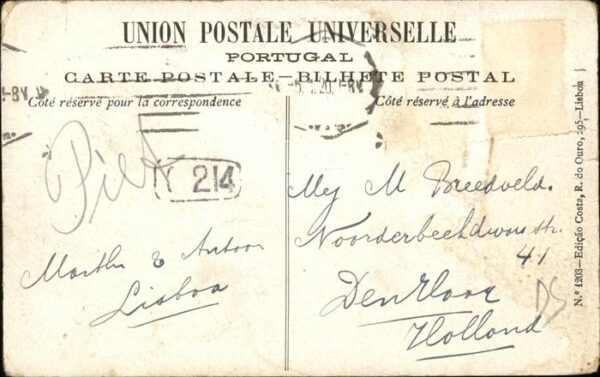 UNION POSTALE UNIVERSELLE
PORTUGAL
CARTE POSTALE—BILHETE POSTAL
Côté réservé pour la correspondence
Côté réservé à l'adresse
Piet
214
Martha & Antoon
Lisboa
Mej M Breedveld.
str.
41
Den Haag
Holland
DS
N.º 1203—Edição Costa, R. do Ouro, 295—Lisboa